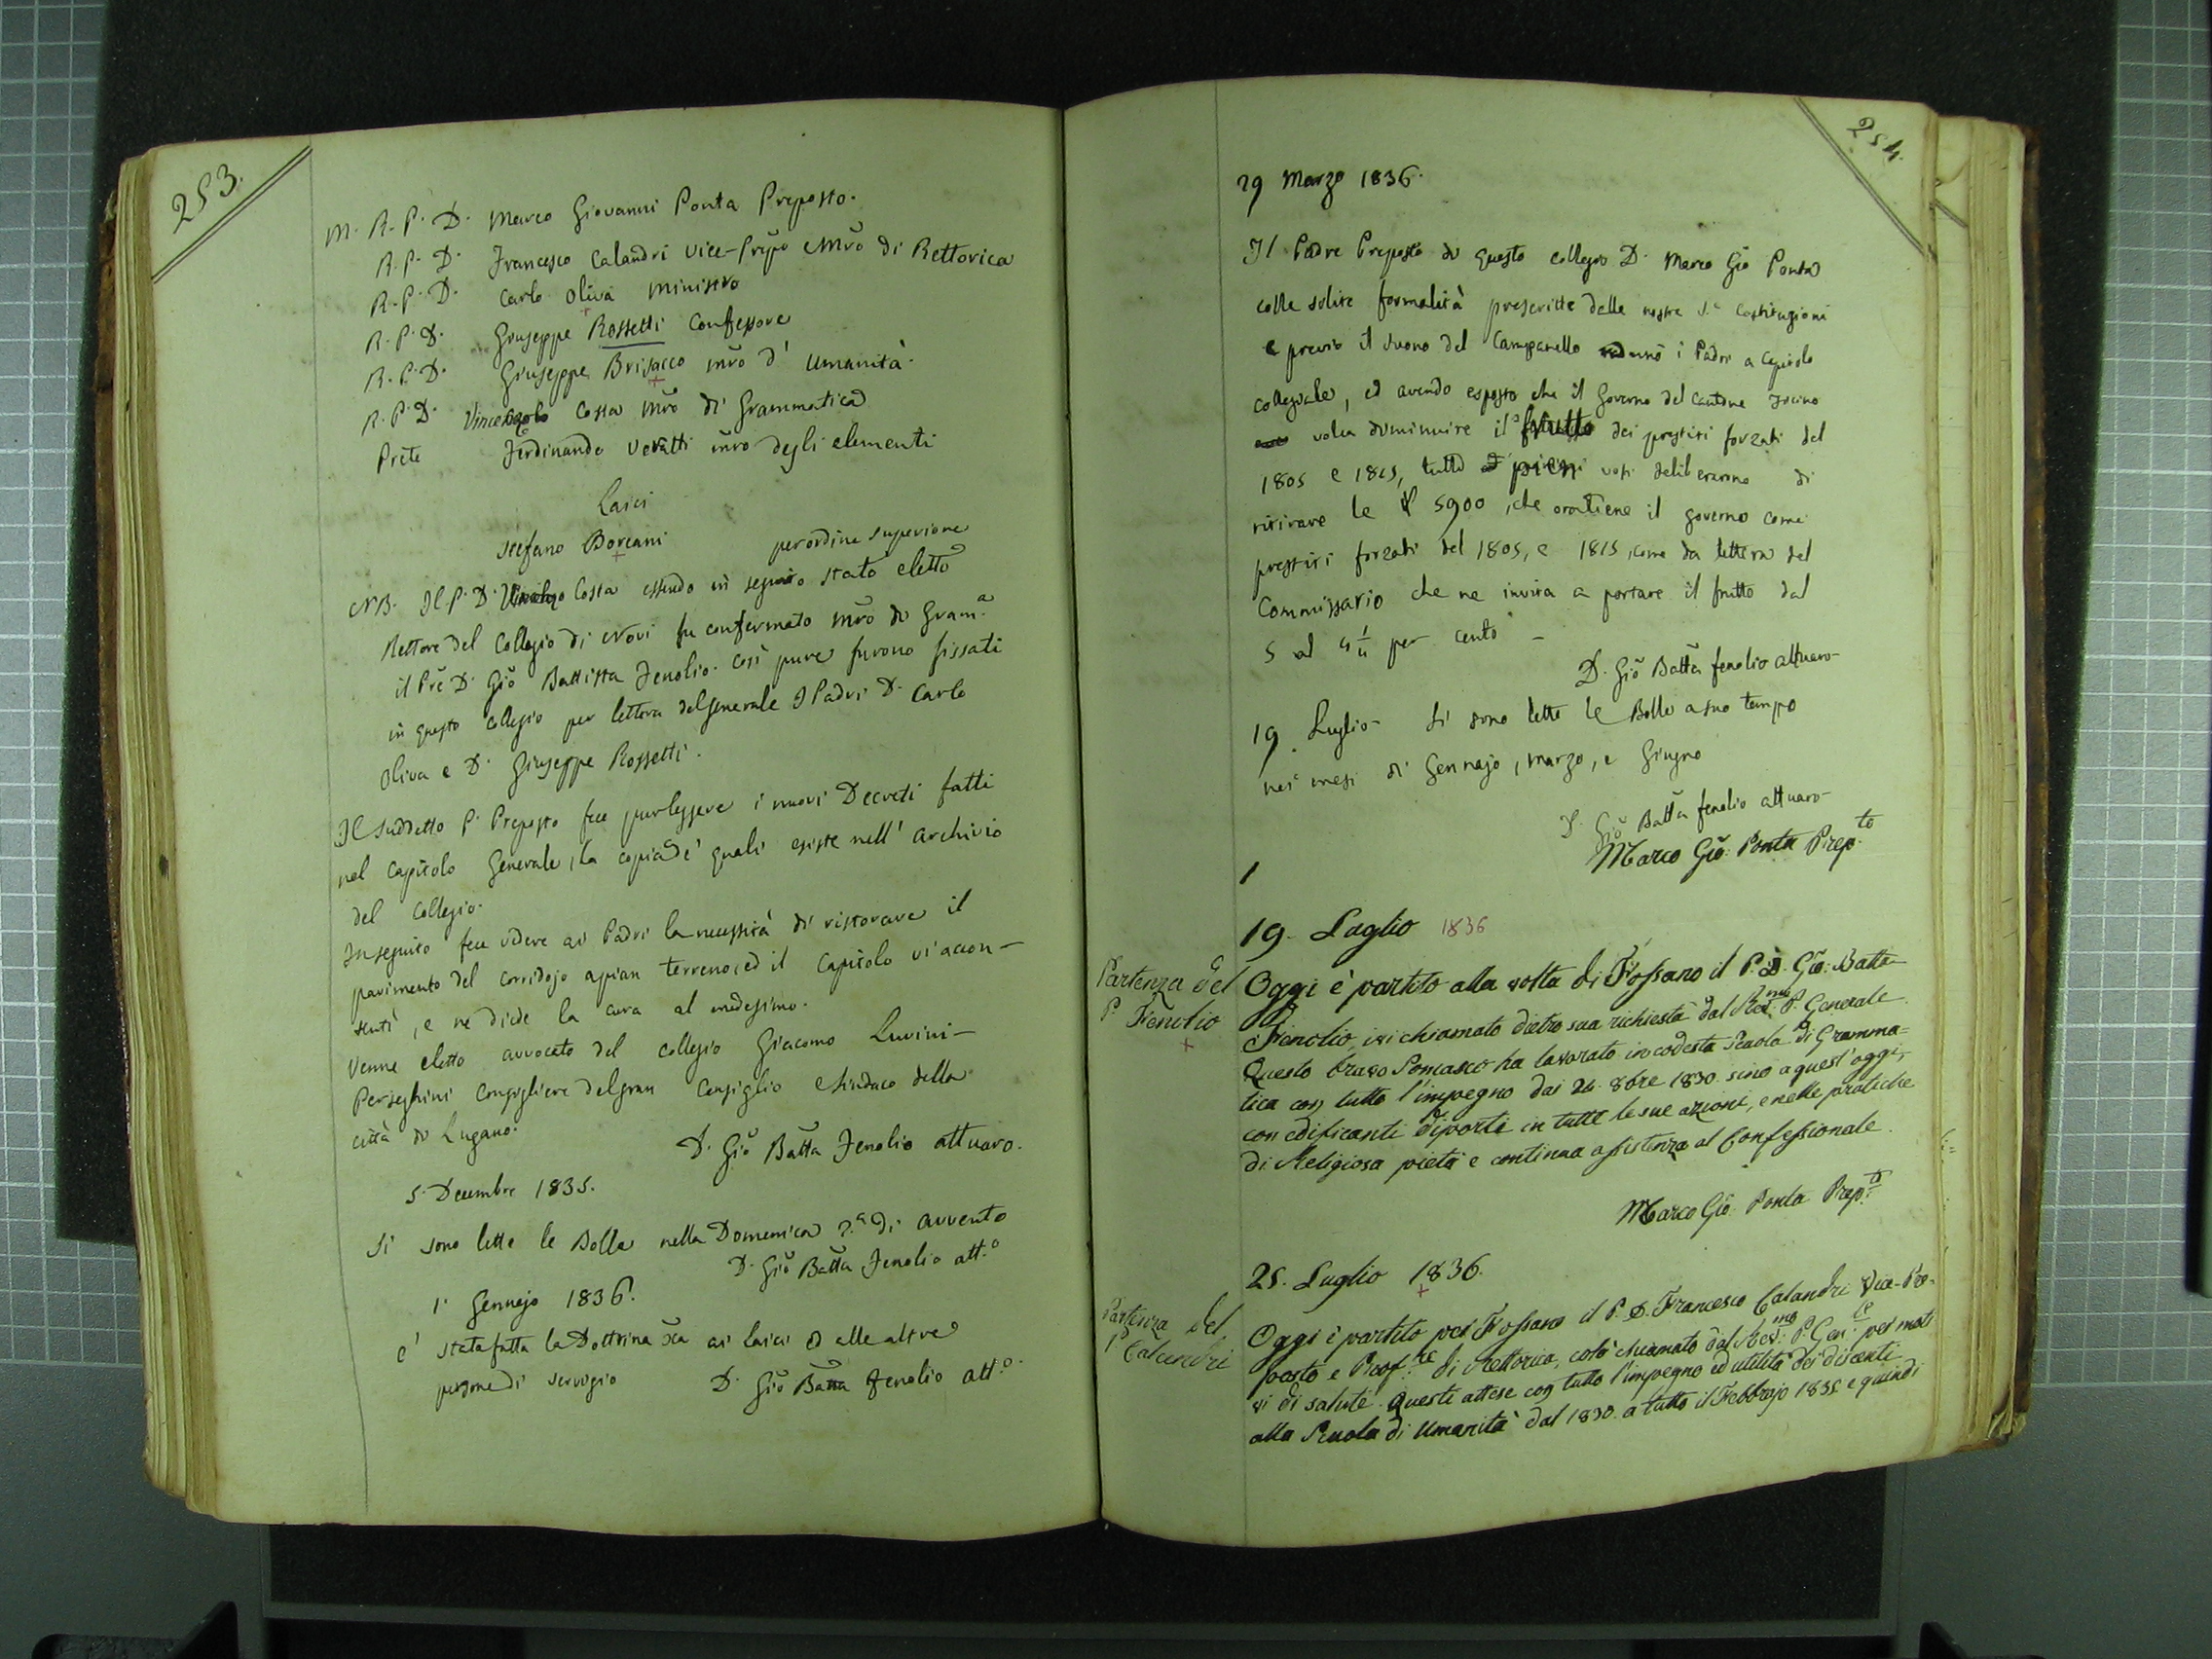 253.
M. R. P. D. Marco Giovanni Ponta Preposto.
R. P. D. Francesco Calandri Vice-Prepo e Mro di Rettorica
R. P. D. Carlo Oliva Ministro
R. P. D. Giuseppe Rossetti Confessore
R. P. D. Giuseppe Brisacco mro d' Umanità.
R. P. D. Costa Mro di Grammatica
Prete Ferdinando mro degli elementi
Laici
Stefano Boreani
per ordine superiore
NB. Il P. D. Costa essendo in seguito stato eletto
Rettore del Collegio di Novi fu confermato Mro di Gram.a
il Pre D. Gio Battista Fenolio. Così pure furono fissati
in questo Collegio per lettera del Generale I Padri D. Carlo
Oliva e D. Giuseppe Rossetti.
Il Suddetto P. Preposto fece pur leggere i nuovi Decreti fatti
nel Capitolo Generale, la copia de' quali esiste nell' archivio
del Collegio.
In seguito fece vedere ai Padri la necessità di ristorare il
pavimento del corridojo a pian terreno, ed il Capitolo vi accon-
sentì, e ne diede la cura al medesimo.
Venne eletto avvocato del Collegio Giacomo Luvini-
Perseghini Consigliere del gran Consiglio e Sindaco della
città di Lugano.
D. Gio Batta Fenolio attuaro.
5. Decembre 1835.
Si sono lette le Bolle nella Domenica 2.a di avvento
D. Gio Batta Fenolio att.o
1. Gennajo 1836.
e' stata fatta la Dottrina Xna ai laici ed alle altre
persone di servigio
D. Gio Batta Fenolio att.o
254.
29 Marzo 1836.
Il Padre Preposto di questo collegio D. Marco Gio Ponta
colle solite formalità prescritte dalle nostre S.e Costituzioni
e previo il suono del Campanello radunò i Padri a Capitolo
collegiale, ed avendo esposto che il Governo del Cantone Ticino
volea diminuire il frutto dei prestiti forzati del
1805 e 1815, tutti a pieni voti deliberarono di
ritirare le 5900, che ora tiene il governo come
prestiti forzati del 1805, e 1815, come da lettera del
Commissario che ne invita a portare il frutto dal
5 al 4 per cento -
D. Gio Batta fenolio attuaro-
19. Luglio- Si sono lette le Bolle a suo tempo
nei mesi di Gennajo, marzo, e Giugno
D. Gio Batta fenolio attuaro-
Marco Gio: Ponta Prep.to
1
19. Luglio 1836
Partenza del
P. Fenolio
Oggi è partito alla volta di Fossano il P. D. Gio: Batta
Fenolio, ivi chiamato dietro sua richiesta dal Rev.mo P. Generale.
Questo bravo Somasco ha lavorato in codesta Scuola di Gramma=
tica con tutto l'impegno dai 24. 8bre 1830. sino a quest'oggi,
con edificanti diporti in tutte le sue azioni, e nelle pratiche
di Religiosa pietà e continua assistenza al Confessionale.
Marco Gio: Ponta Prep.to
25. Luglio 1836.
Partenza del
P. Calandri
Oggi è partito per Fossano il P. D. Francesco Calandri Vice-Pre-
posto e Prof.re di Rettorica, colà chiamato dal Rev.mo P. Gen.le per moti
vi di salute. Questi attese con tutto l'impegno ed utilità dei discenti
alla Scuola di Umanità dal 1830. a tutto il Febbrajo 1835 e quindi